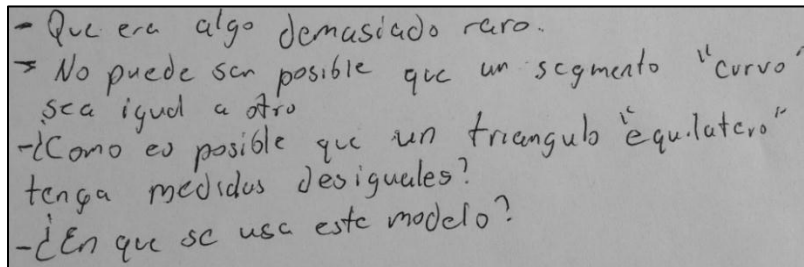 - Que era algo demasiado raro.
- No puede ser posible que un segmento "curvo"
sea igual a otro
- ¿Como es posible que un triangulo "equilatero"
tenga medidas desiguales?
- ¿En que se usa este modelo?